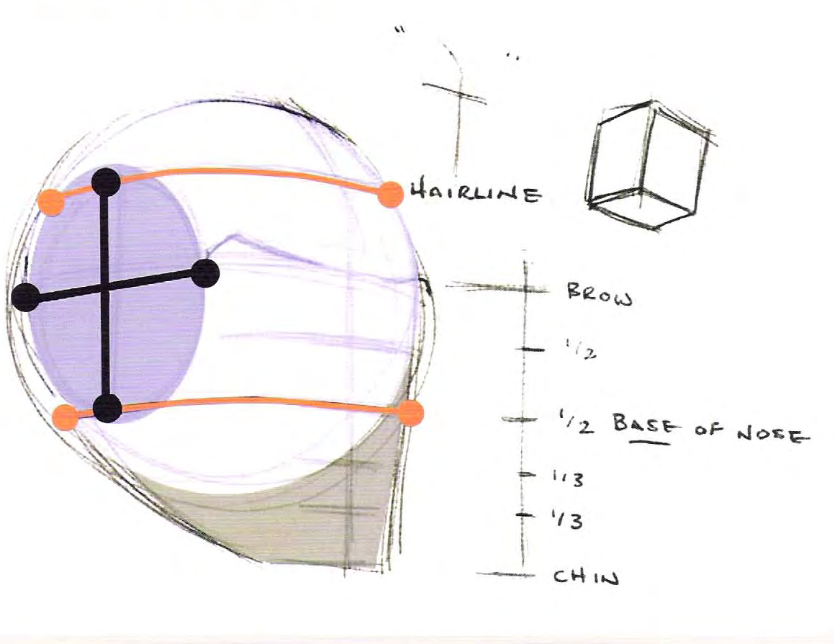 HAIRLINE
BROW
1/2
1/2 BASE OF NOSE
1/3
1/3
CHIN